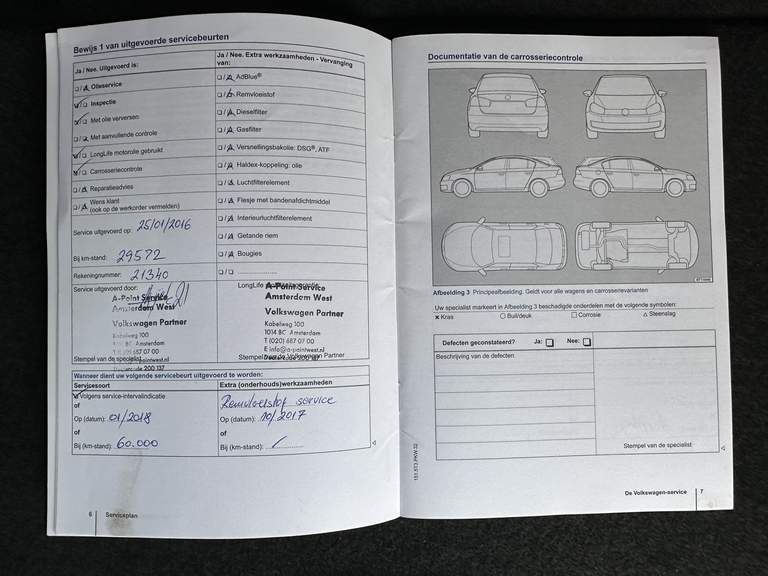 Bewijs 1 van uitgevoerde servicebeurten
Ja / Nee. Uitgevoerd is:
Olieservice
Inspectie
Met olie verversen
Met aanvullende controle
LongLife motorolie gebruikt
Carrosseriecontrole
Reparatieadvies
Wens klant
(ook op de werkorder vermelden)
Service uitgevoerd op: 25/01/2016
Bij km-stand: 29572
Rekeningnummer: 21340
Service uitgevoerd door:
A-Point Service
Amsterdam West
Volkswagen Partner
Kabelweg 100
1014 BC Amsterdam
T (020) 687 07 00
E info@a-pointwest.nl
Stempel van de specialist
Dealercode 200 137
Ja / Nee. Extra werkzaamheden - Vervanging
van:
AdBlue®
Remvloeistof
Dieselfilter
Gasfilter
Versnellingsbakolie: DSG®, ATF
Haldex-koppeling: olie
Luchtfilterelement
Flesje met bandenafdichtmiddel
Interieurluchtfilterelement
Getande riem
Bougies
LongLife
A-Point Service
Amsterdam West
Volkswagen Partner
Kabelweg 100
1014 BC Amsterdam
T (020) 687 07 00
E info@a-pointwest.nl
Stempel van de Volkswagen Partner
Dealercode 200 137
Wanneer dient uw volgende servicebeurt uitgevoerd te worden:
Servicesoort
Volgens service-intervalindicatie
of
Op (datum): 01/2018
of
Bij (km-stand): 60.000
Extra (onderhouds)werkzaamheden
Remvloeistof service
Op (datum): 10/2017
of
Bij (km-stand):
6 Serviceplan
Documentatie van de carrosseriecontrole
Afbeelding 3 Principeafbeelding. Geldt voor alle wagens en carrosserievarianten
Uw specialist markeert in Afbeelding 3 beschadigde onderdelen met de volgende symbolen:
× Kras ○ Buil/deuk □ Corrosie △ Steenslag
Defecten geconstateerd? Ja: □ Nee: □
Beschrijving van de defecten:
Stempel van de specialist
151.5T3.PKW.32
De Volkswagen-service 7